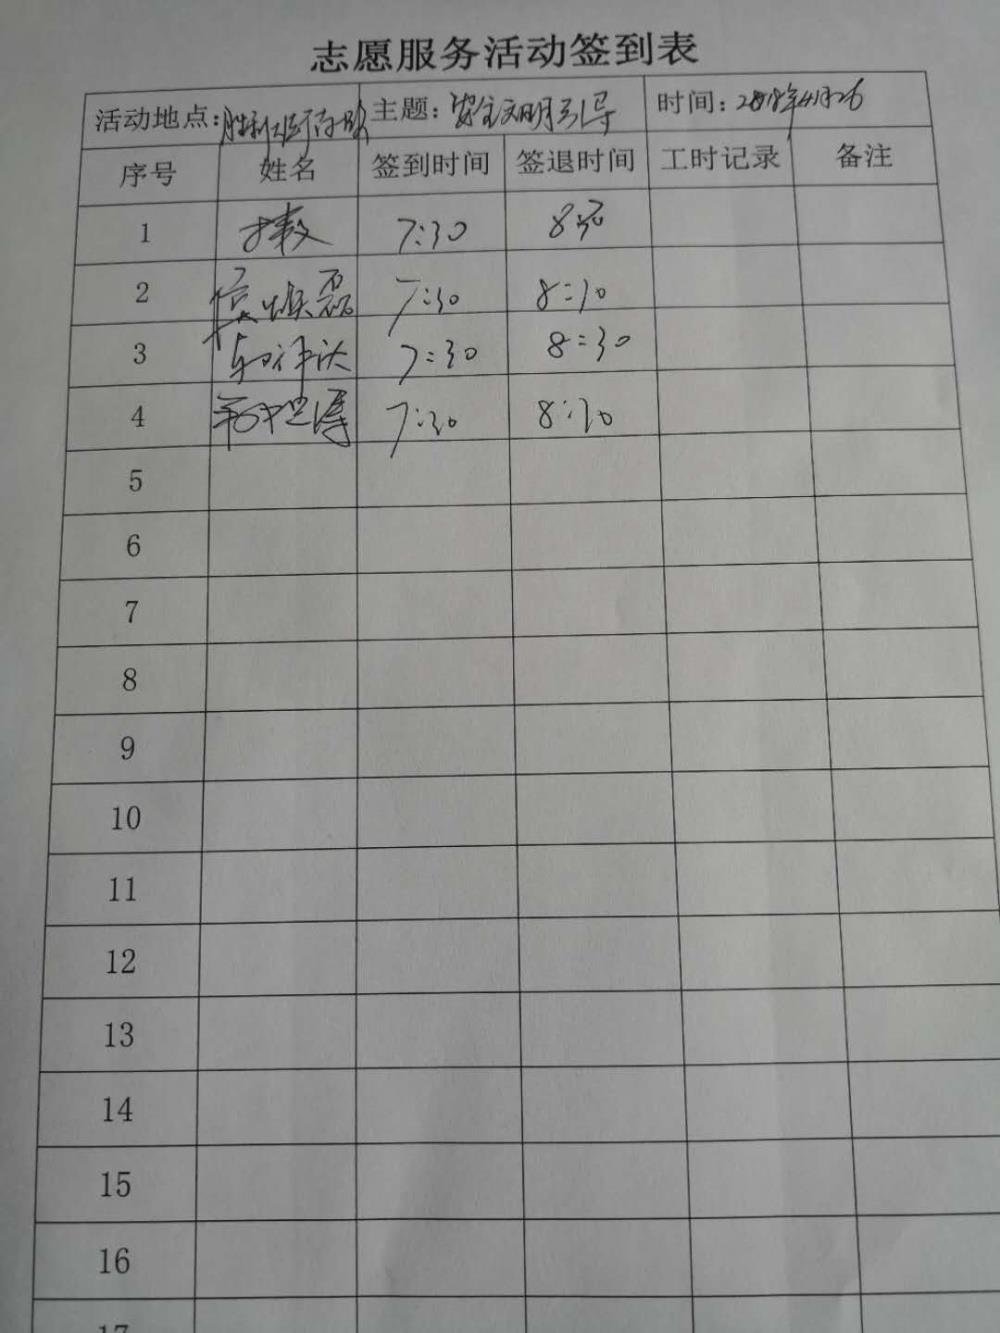 志愿服务活动签到表
活动地点: 主题: 安全文明引导 时间: 2018年4月26
序号 姓名 签到时间 签退时间 工时记录 备注
1 7:30 8:30
2 7:30 8:30
3 7:30 8:30
4 7:30 8:30
5
6
7
8
9
10
11
12
13
14
15
16
17